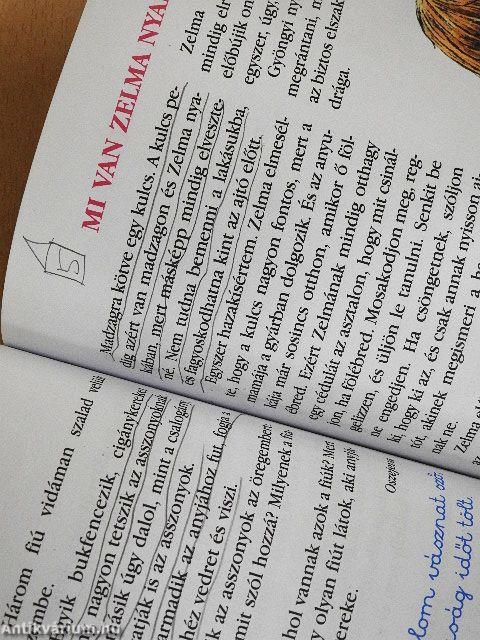 MI VAN ZELMA NYA
5
Madzagra kötve egy kulcs. A kulcs pe-
dig azért van madzagon és Zelma nya-
kában, mert másképp mindig elveszte-
né. Nem tudna bemenni a lakásukba,
és fagyoskodhatna kint az ajtó előtt.
Egyszer hazakísértem. Zelma elmesél-
te, hogy a kulcs nagyon fontos, mert a
mamája a gyárban dolgozik. És az anyu-
kája már sosincs otthon, amikor ő föl-
ébred. Ezért Zelmának mindig otthagy
egy cédulát az asztalon, hogy mit csinál-
jon, ha fölébred. Mosakodjon meg, reg-
gelizzen, és üljön le tanulni. Senkit be
ne engedjen. Ha csöngetnek, szóljon
ki, hogy ki az, és csak annak nyisson aj-
tót, akinek megismeri a ha
nak ne.
Zelma
Zelma
mindig el
előbújik on
egyszer, úgy,
Gyöngyi ny
megrántani, m
az biztos elszak
drága.
három fiú vidáman szalad velük
mbe.
yik bukfencezik, cigánykereke
nagyon tetszik az asszonyoknak
ásik úgy dalol, mint a csalogány
atják is az asszonyok.
armadik az anyjához fut, fogja a
héz vedret és viszi.
k az asszonyok az öregembert
mit szól hozzá? Milyenek a fi
hol vannak azok a fiúk? Mert
y olyan fiút látok, aki anyja
ereke.
Oszejeva
lom vásznat
ság időt tölt
Antikvárium.hu